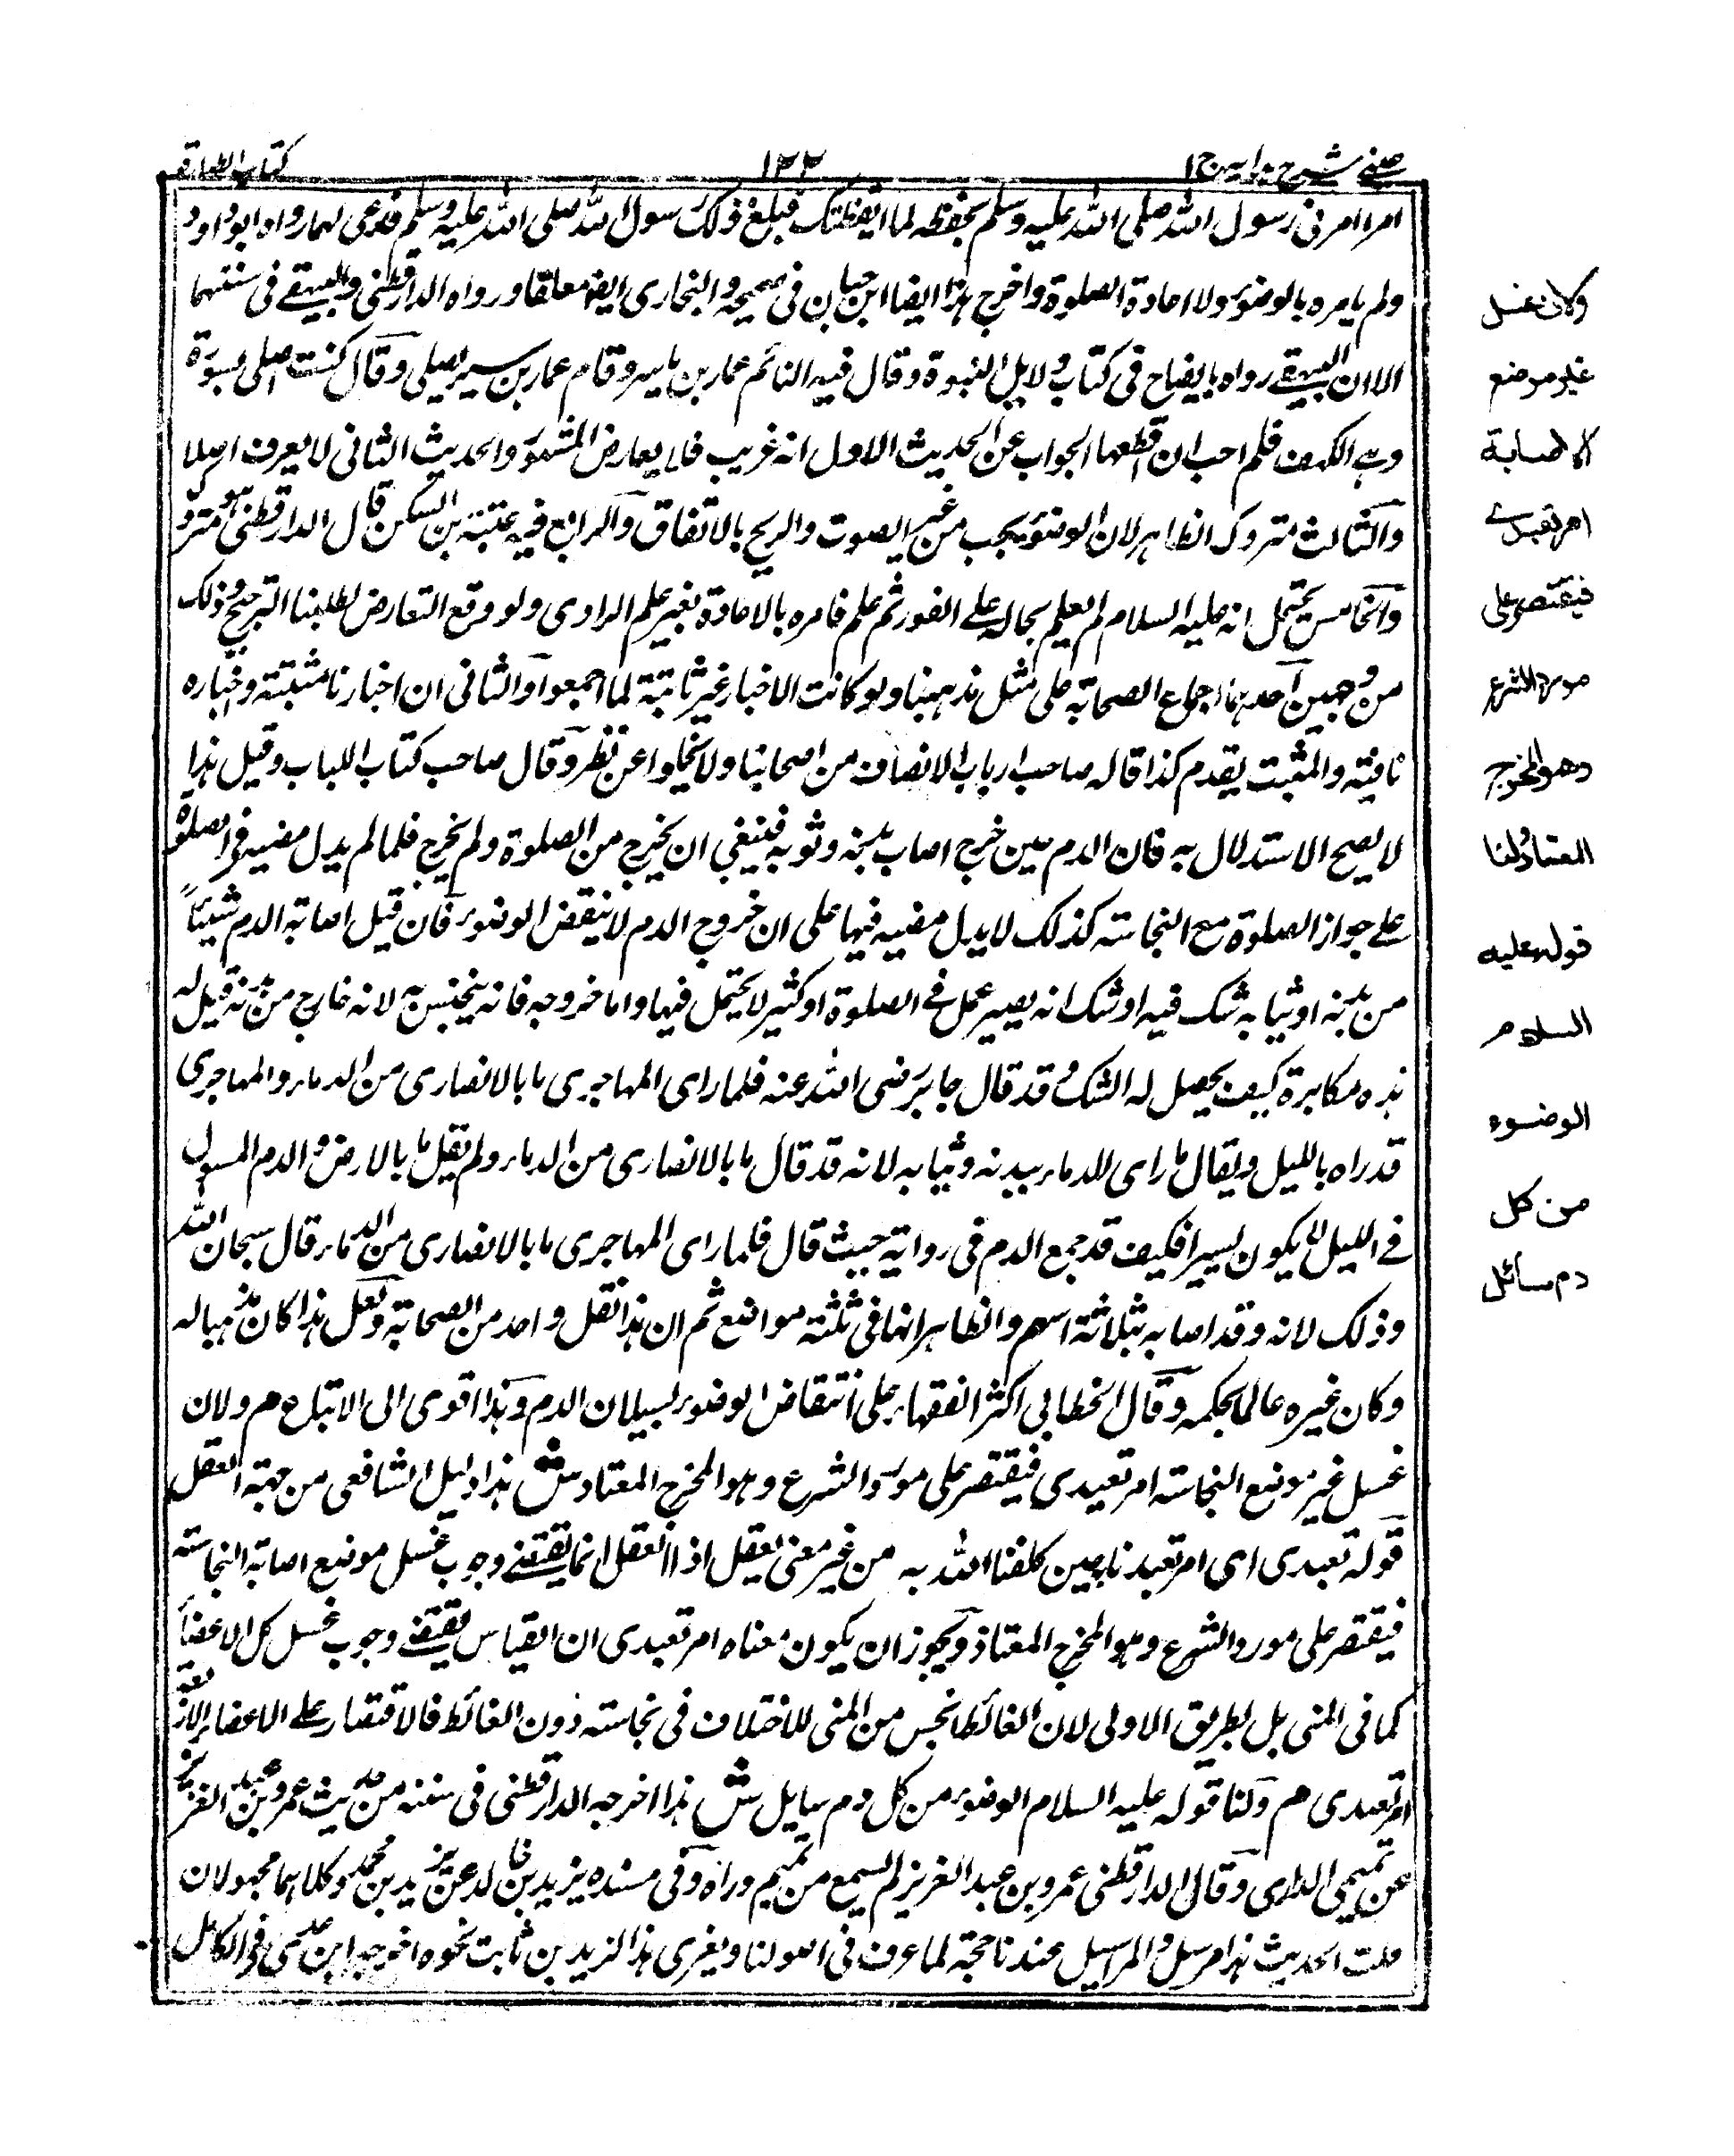 عینی شرح ہدایہ ج ۱
۱۲۲
کتاب الطہارۃ
امراامرنی رسول اللہ صلی اللہ علیہ وسلم بحفظہ لما ایقظتک فبلغ ذلک رسول اللہ صلی اللہ علیہ وسلم فدعی لہما رواہ ابو داود
ولم یامرہ بالوضوء ولا اعادۃ الصلوۃ واخرج ہذا ایضا ابن حبان فی صحیحہ والبخاری ایضا معلقا ورواہ الدارقطنی والبیہقے فی سننہما
الا ان البیہقے رواہ بایضاح فی کتاب دلایل النبوۃ وقال فیہ النائم عمار بن یاسر وقام عمار بن سیر یصلی وقال کنت اصلی بسورۃ
وہی الکہف فلم احب ان اقطعہا الجواب عن الحدیث الاول انہ غریب فلا یعارض المشہور والحدیث الثانی لا یعرف اصلا
والثالث متروک الظاہر لان الوضوء یجب من غیر الصوت والریح بالاتفاق والرابع فیہ عتبۃ بن السکن قال الدارقطنی ہو مترو
والخامس یحتمل انہ علیہ السلام لم یعلم بحالہ علے الفور ثم علم فامرہ بالاعادۃ بغیر علم الراوی ولو وقع التعارض لطلبنا الترجیح وذلک
من وجہین احدہما اجماع الصحابۃ علی مثل مذہبنا ولو کانت الاخبار غیر ثابتۃ لما اجمعوا والثانی ان اخبارنا مثبتۃ واخبارہ
نافیۃ والمثبت یقدم کذا قالہ صاحب ارباب الانصاف من اصحابنا ولا یخلوا عن نظر وقال صاحب کتاب اللباب وقیل ہذا
لا یصح الاستدلال بہ فان الدم حین خرج اصاب بدنہ وثوبہ فینبغی ان یخرج من الصلوۃ ولم یخرج فلما لم یدل مضیہ فی الصلوۃ
علے جواز الصلوۃ مع النجاستہ کذلک لا یدل مضیہ فیہا علی ان خروج الدم لا ینقض الوضوء فان قیل اصابۃ الدم شیئاً
من بدنہ او ثیابہ شک فیہ او شک انہ یصیر عمل فے الصلوۃ او کثیر لا یحتمل فیہا واما خروجہ فانہ یتنجس بہ لانہ خارج من بدنہ قیل لہ
ہذہ مکابرۃ کیف یحصل لہ الشک وقد قال جابر رضی اللہ عنہ فلما رای المہاجری ما بالانصاری من الدماء والمہاجری
قد راہ باللیل ویقال ما رای للدماء ببدنہ وثیابہ لانہ قد قال ما بالانصاری من الدماء ولم یقل ما بالارض والدم المسول
فے اللیل لا یکون یسیرا فکیف قد جمع الدم فی روایۃ حیث قال فلما رای المہاجری ما بالانصاری من الدماء قال سبحان اللہ
وذلک لانہ وقد اصابہ بثلاثۃ اسہم والظاہر انہا فی ثلثۃ مواضع ثم ان ہذا نقل واحد من الصحابۃ ولعل ہذا کان مذہبا لہ
وکان غیرہ عالما بحکمہ وقال الخطابی اکثر الفقہاء علی انتقاض الوضوء بسیلان الدم وہذا اقوی الی الاتباع م ولان
غسل غیر موضع النجاستہ امر تعبدی فیقتصر علی مورد الشرع وہو المخرج المعتاد ش ہذا دلیل الشافعی من جہتہ العقل
قولہ تعبدی ای امر تعبدنا بہ حین کلفنا اللہ بہ من غیر معنی یعقل اذا العقل انما یقتضے وجوب غسل موضع اصابۃ النجاستہ
فیقتصر علی مورد الشرع وہو المخرج المعتاد ویجوز ان یکون معناہ امر تعبدی ان القیاس یقتضے وجوب غسل کل الاعضاء
کما فی المنی بل بطریق الاولی لان الغائط انجس من المنی للاختلاف فی نجاستہ دون الغائط فالاقتصار علے الاعضاء الاربعۃ
امر تعبدی م ولنا قولہ علیہ السلام الوضوء من کل دم سایل ش ہذا اخرجہ الدارقطنی فی سننہ من حدیث عمرو بن عبد العزیز
عن تمیمی الداری وقال الدارقطنی عمرو بن عبد العزیز لم یسمع من تمیم وراہ وفی مسندہ یزید بن خالد عن یزید بن محمد وکلاہما مجہولان
قلت الحدیث ہذا مرسل والمراسیل عندنا حجۃ لما عرف فی اصولنا ویغری ہذا لزید بن ثابت نحوہ اخرجہ ابن عدی فی الکامل
ولان غسل
غیر موضع
الاصابة
امر تعبدے
فیقتصر علی
مورد الشرع
وهو المخرج
المعتاد ولنا
قوله علیه
السلام
الوضوء
من کل
دم سائل